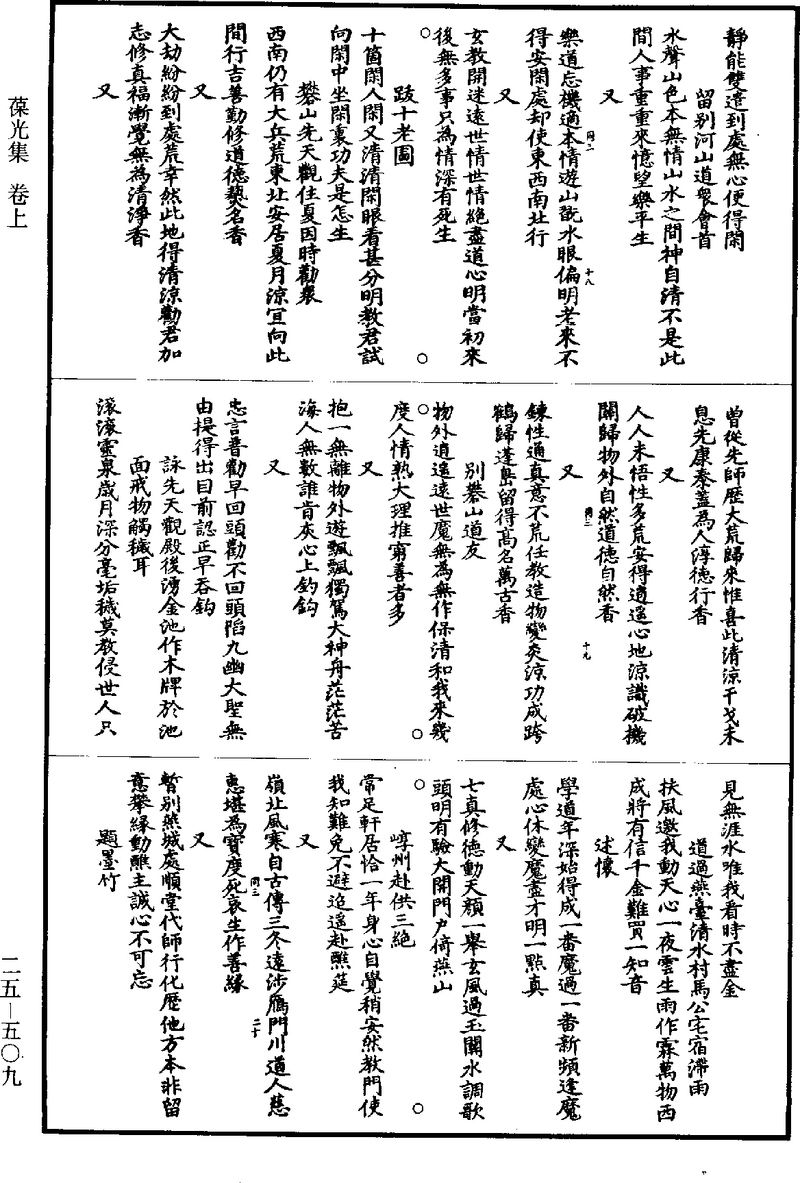 葆光集　卷上
靜能雙遣到處無心便得閑
留別河山道眾會首
水聲山色本無情山水之間神自清不是此
間人事重重來憶望樂平生
又
樂道忘機適本情遊山翫水眼偏明老來不
得安閑處却使東西南北行
又
玄教開迷遠世情世情絕盡道心明當初來
後無多事只為情深有死生
跋十老圖
十箇閑人閑又清清閑眼看甚分明教君試
向閑中坐閑裏功夫是怎生
礬山先天觀住夏因時勸眾
西南仍有大兵荒東北安居夏月涼宜向此
間行吉善勤修道德藝名香
又
大劫紛紛到處荒幸然此地得清涼勸君加
志修真福漸覺無為清淨香
又
曾從先師歷大荒歸來惟喜此清涼干戈未
息先康泰蓋為人淳德行香
又
人人未悟性多荒安得逍遥心地涼識破機
關歸物外自然道德自然香
又
鍊性通真意不荒任教造物變炎涼功成跨
鶴歸蓬島留得高名萬古香
別礬山道友
物外逍遥遠世魔無為無作保清和我來幾
度人情熟大理推窮善者多
又
抱一無離物外遊飄飄獨駕大神舟茫茫苦
海人無數誰肯灰心上釣鈎
又
忠言普勸早回頭勸不回頭陷九幽大聖無
由提得出目前認正早吞鈎
詠先天觀殿後湧金池作木牌於池
面戒物觸穢耳
滾滾靈泉歲月深分毫垢穢莫教侵世人只
見無涯水唯我看時不盡金
道過燕臺清水村馬公宅宿滯雨
扶風邀我動天心一夜雲生雨作霖萬物西
成將有信千金難買一知音
述懷
學道年深始得成一番魔過一番新頻逢魔
處心休變魔盡才明一點真
又
七真修德動天顏一舉玄風過玉關水調歌
頭明有驗大開門戶倚燕山
崞州赴供三絕
常足軒居恰一年身心自覺稍安然教門使
我知難免不避迢遥赴醮筵
又
嶺北風寒自古傳三冬遠涉鴈門川道人慈
惠堪為寶度死哀生作善緣
又
暫別燕城處順堂代師行化歷他方本非留
意攀緣動醮主誠心不可忘
題墨竹
二五－五〇九